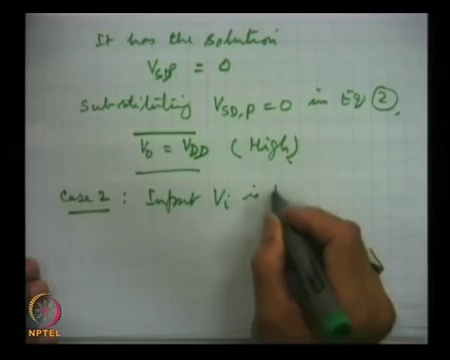 It has the solution
V_SDP = 0
Substituting V_SD,P = 0 in Eq ②,
V_0 = V_DD (High)
Case 2 : Input V_i is
NPTEL